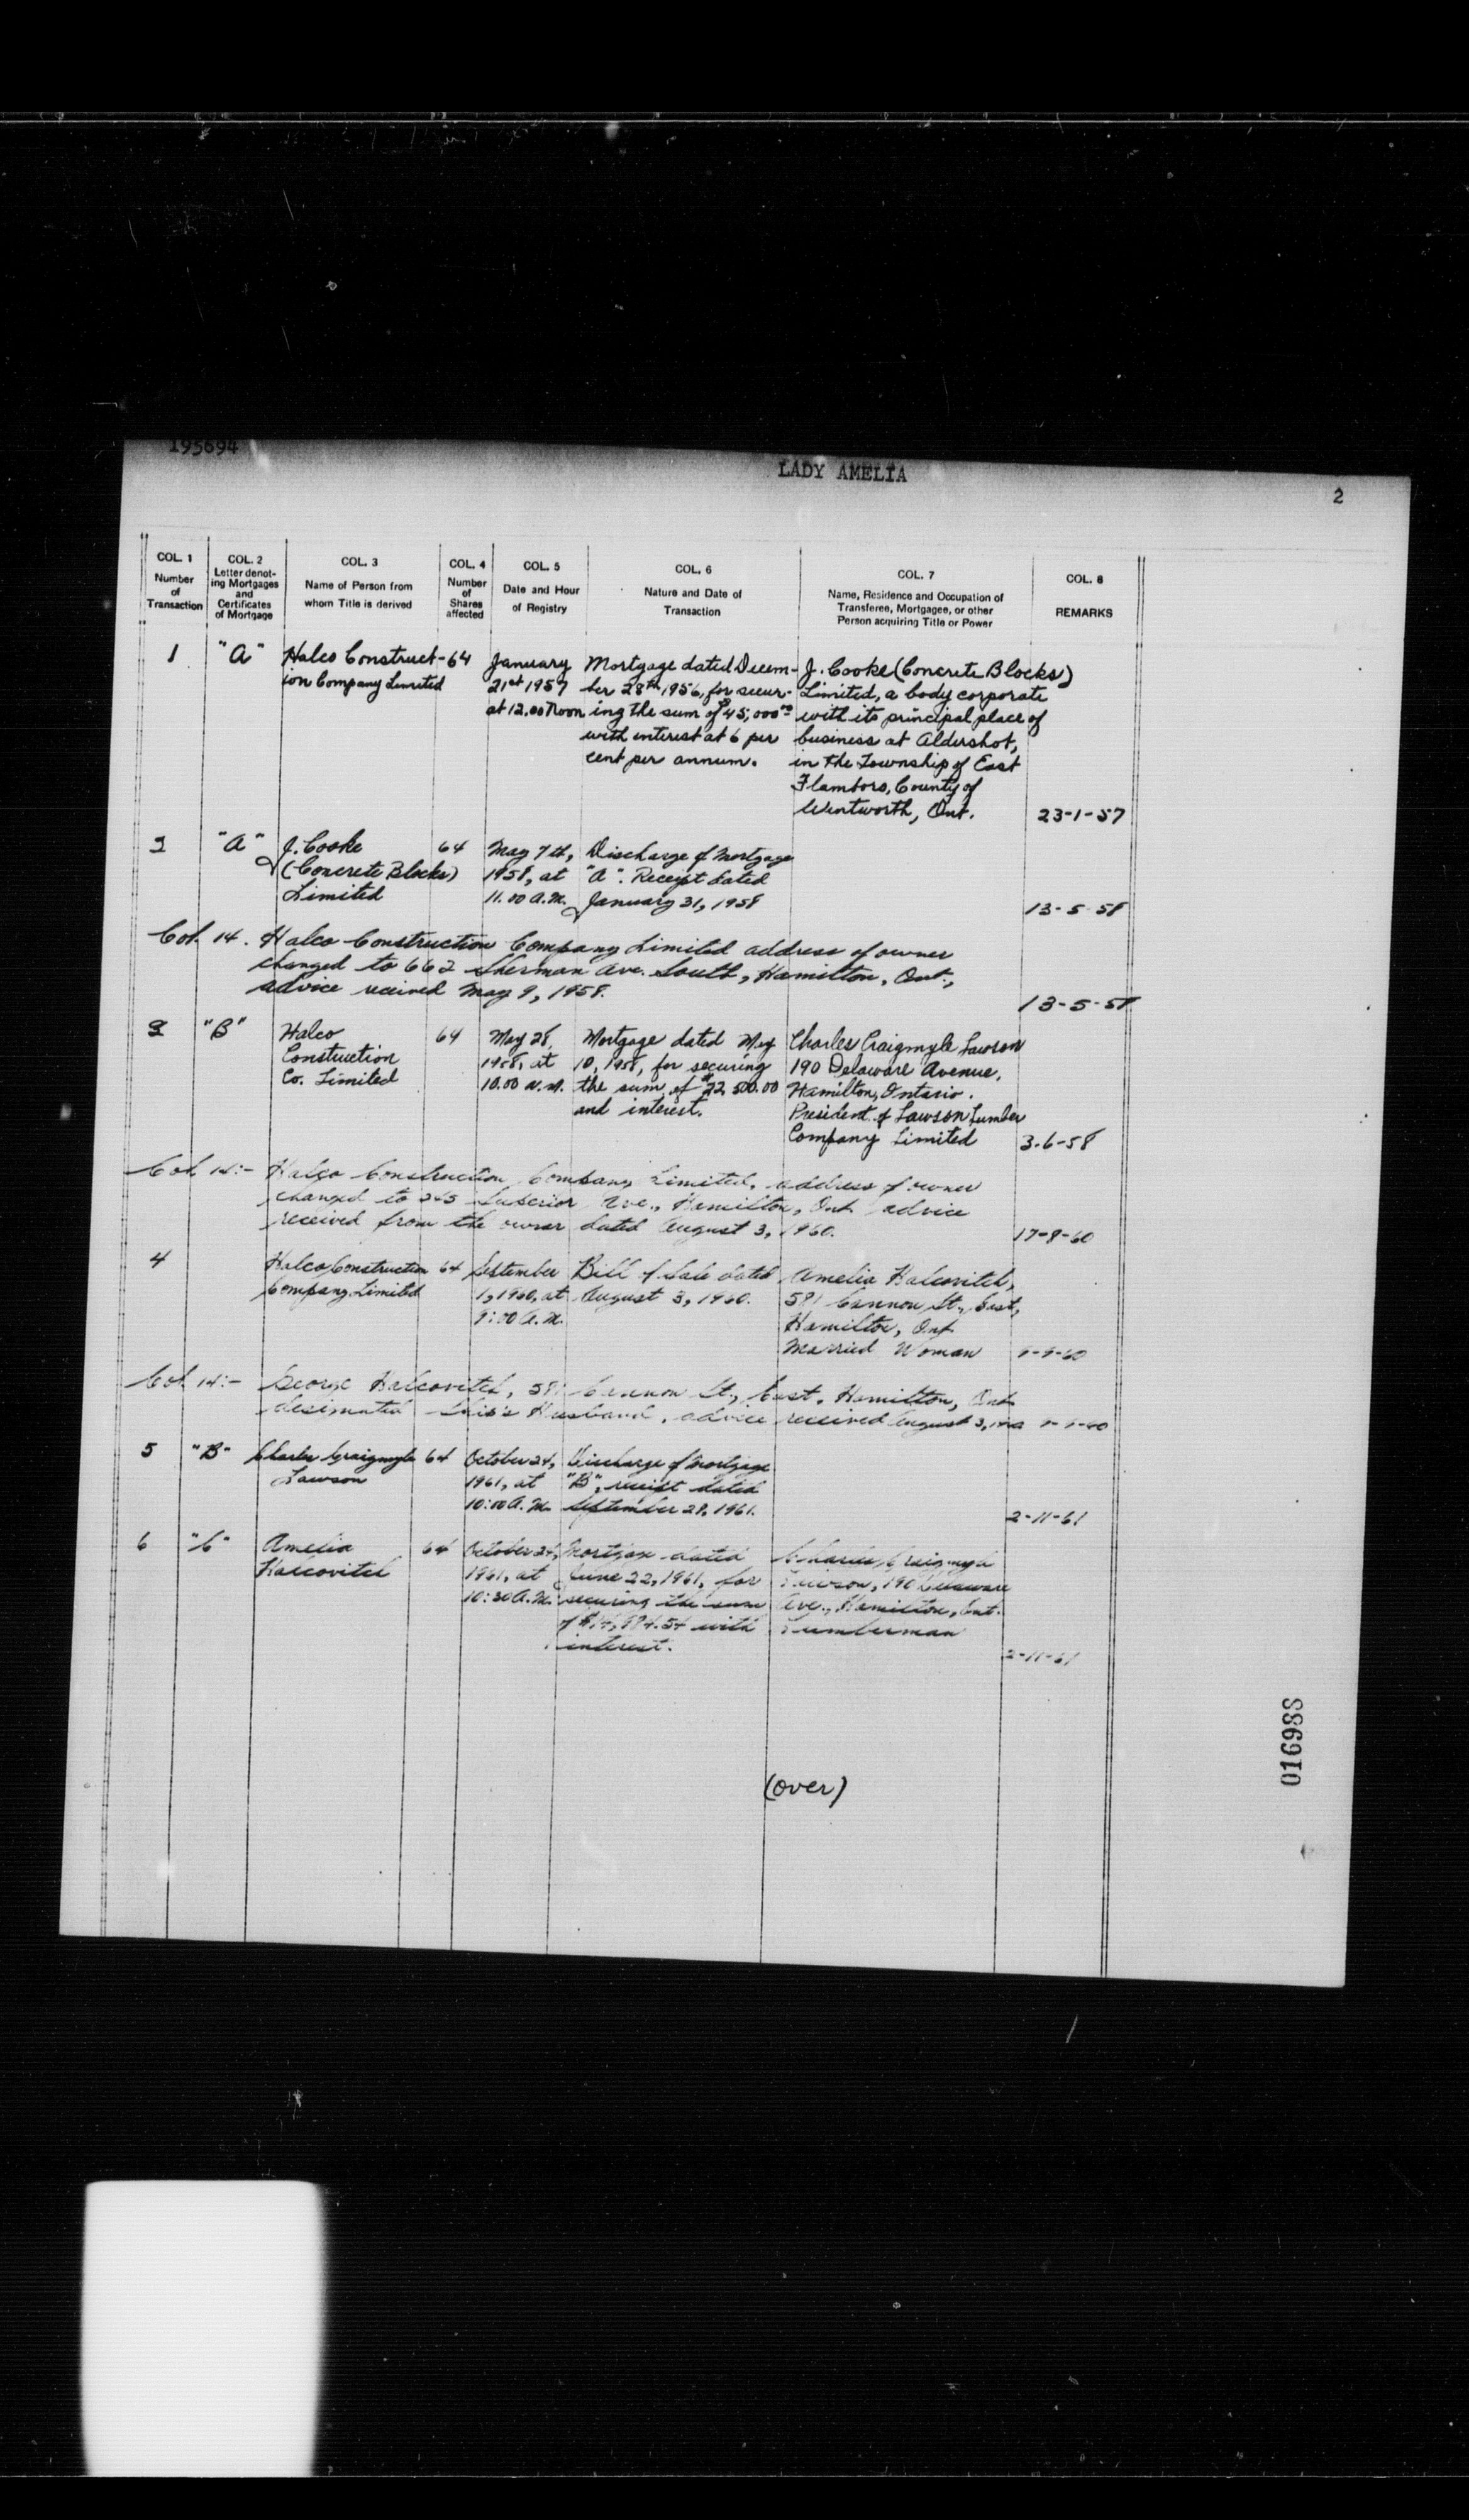 195694
LADY AMELIA
2
COL. 1 Number of Transaction
COL. 2 Letter denot-ing Mortgages and Certificates of Mortgage
COL. 3 Name of Person from whom Title is derived
COL. 4 Number of Shares affected
COL. 5 Date and Hour of Registry
COL. 6 Nature and Date of Transaction
COL. 7 Name, Residence and Occupation of Transferee, Mortgagee, or other Person acquiring Title or Power
COL. 8 REMARKS
1 "A" Halco Construct- 64 January Mortgage dated Decem- J. Cooke (Concrete Blocks)
ion Company Limited 21st 1957 ber 28th 1956, for secur- Limited, a body corporate
at 12.00 Noon ing the sum of $45,000.00 with its principal place of
with interest at 6 per business at Aldershot,
cent per annum. in the Township of East
Flamboro, County of
Wentworth, Ont. 23-1-57
2 "A" J. Cooke 64 May 7th, Discharge of Mortgage
(Concrete Blocks) 1958, at "A". Receipt dated
Limited 11.00 A.M. January 31, 1958
13-5-58
Col. 14. Halco Construction Company Limited address of owner
changed to 662 Sherman Ave. South, Hamilton, Ont.,
advice received May 9, 1958.
13-5-58
3 "B" Halco 64 May 28, Mortgage dated May Charles Craigmyle Lawson
Construction 1958, at 10, 1958, for securing 190 Delaware Avenue,
Co. Limited 10.00 A.M. the sum of $22,500.00 Hamilton, Ontario.
and interest. President of Lawson Lumber
Company Limited 3-6-58
Col 14:- Halco Construction Company Limited, address of owner
changed to Superior Ave., Hamilton, Ont advice
received from the owner dated August 3, 1960.
17-8-60
4 Halco Construction 64 September Bill of Sale dated Amelia Halcovitch,
Company Limited 1, 1960, at August 3, 1960. 581 Cannon St., East,
9:00 A.M. Hamilton, Ont
Married Woman
Col 14:- George Halcovitch, 581 Cannon St., East, Hamilton, Ont
designated Ship's Husband, advice received August 3, 1960
5 "B" Charles Craigmyle 64 October 24, Discharge of Mortgage
Lawson 1961, at "B", receipt dated
10:00 A.M. September 28, 1961.
2-11-61
6 "C" Amelia 64 October 24, Mortgage dated Charles Craigmyle
Halcovitch 1961, at June 22, 1961, for Lawson, 190 Delaware
10:30 A.M. securing the sum Ave., Hamilton, Ont.
of with Lumberman
interest.
2-11-61
(over)
016988